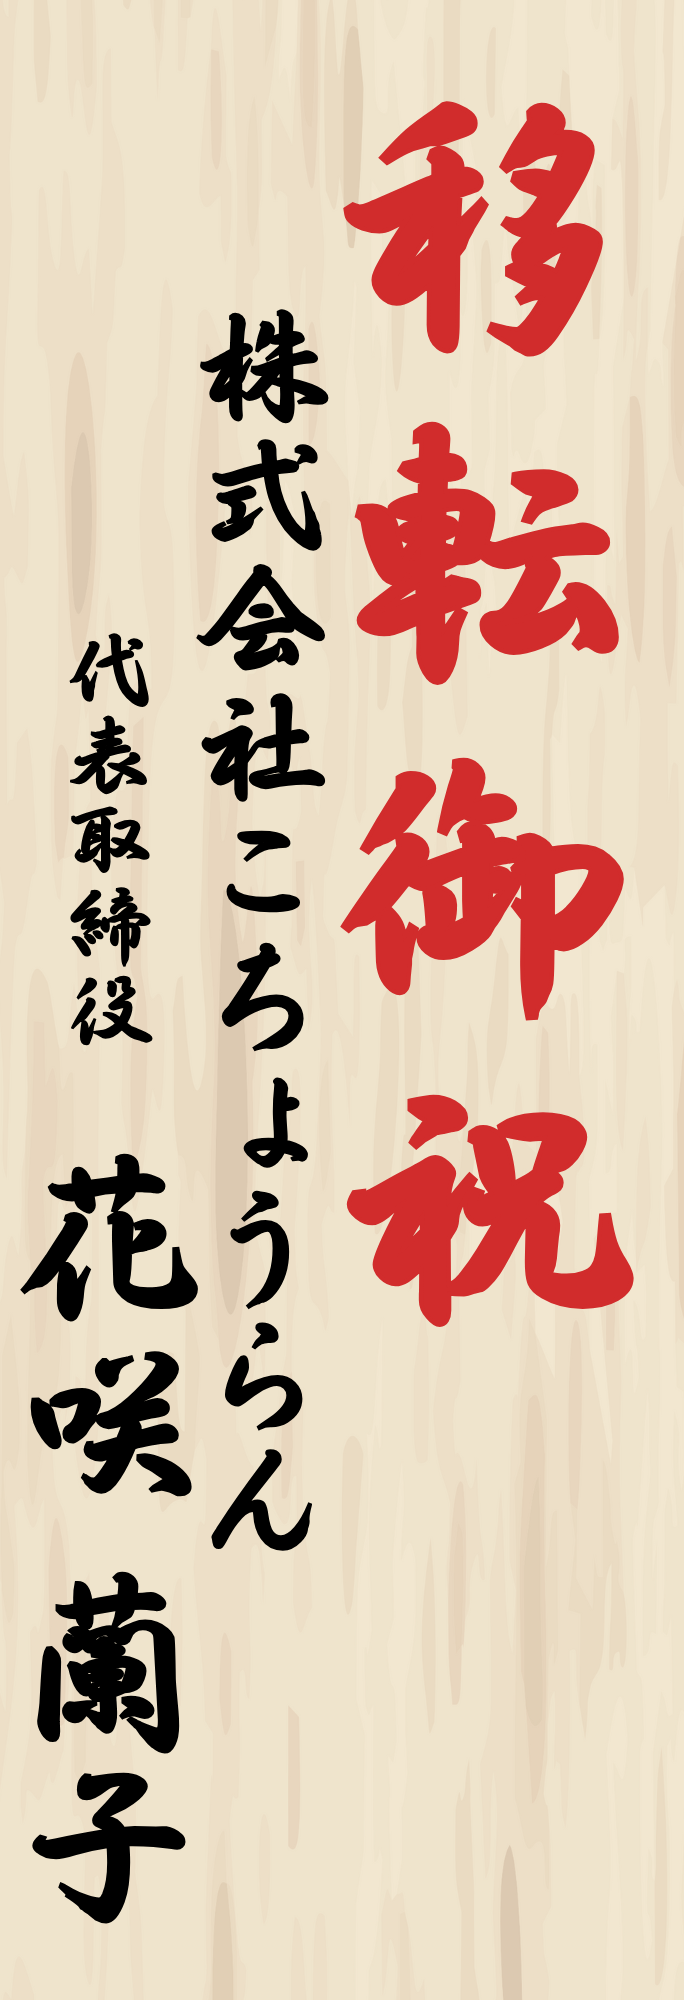 移転御祝
株式会社こちょうらん
代表取締役 花咲 蘭子